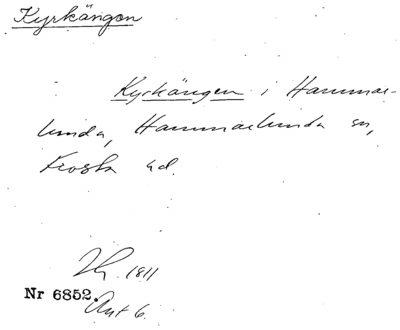 Kyrkängen
Kyrkängen i Hammar-
lunda, Hammarlunda sn,
Frosta hd.
1811
Nr 6852. Akt 6.